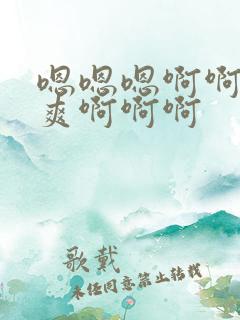 嗯嗯嗯啊啊
爽啊啊啊
歌戴
未经同意禁止转载